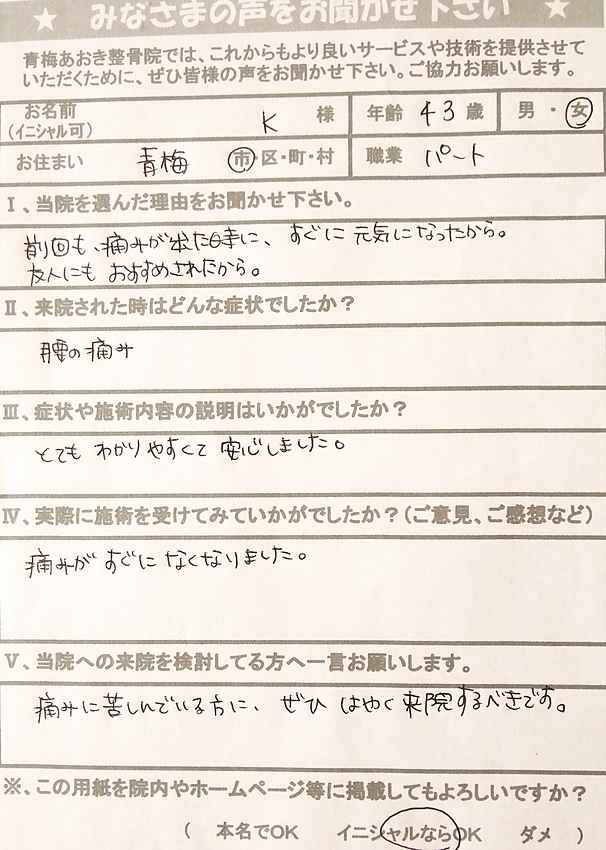 ★ みなさまの声をお聞かせ下さい ★
青梅あおき整骨院では、これからもより良いサービスや技術を提供させて
いただくために、ぜひ皆様の声をお聞かせ下さい。ご協力お願いします。
お名前 (イニシャル可) K 様 年齢 43 歳 男 ・ 女
お住まい 青梅 市・区・町・村 職業 パート
Ⅰ、当院を選んだ理由をお聞かせ下さい。
前回も、痛みが出た時に、すぐに元気になったから。
友人にもおすすめされたから。
Ⅱ、来院された時はどんな症状でしたか？
腰の痛み
Ⅲ、症状や施術内容の説明はいかがでしたか？
とてもわかりやすくて安心しました。
Ⅳ、実際に施術を受けてみていかがでしたか？(ご意見、ご感想など)
痛みがすぐになくなりました。
Ⅴ、当院への来院を検討してる方へ一言お願いします。
痛みに苦しんでいる方に、ぜひはやく来院するべきです。
※、この用紙を院内やホームページ等に掲載してもよろしいですか？
( 本名でOK イニシャルならOK ダメ )